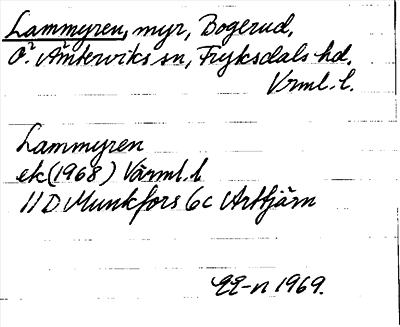 Lammyren, myr, Bogerud,
Ö. Ämterviks sn, Fryksdals hd.
Vrml. l.
Lammyren
ek (1968) Värml. l
11 D Munkfors 6c Arttjärn
1969.